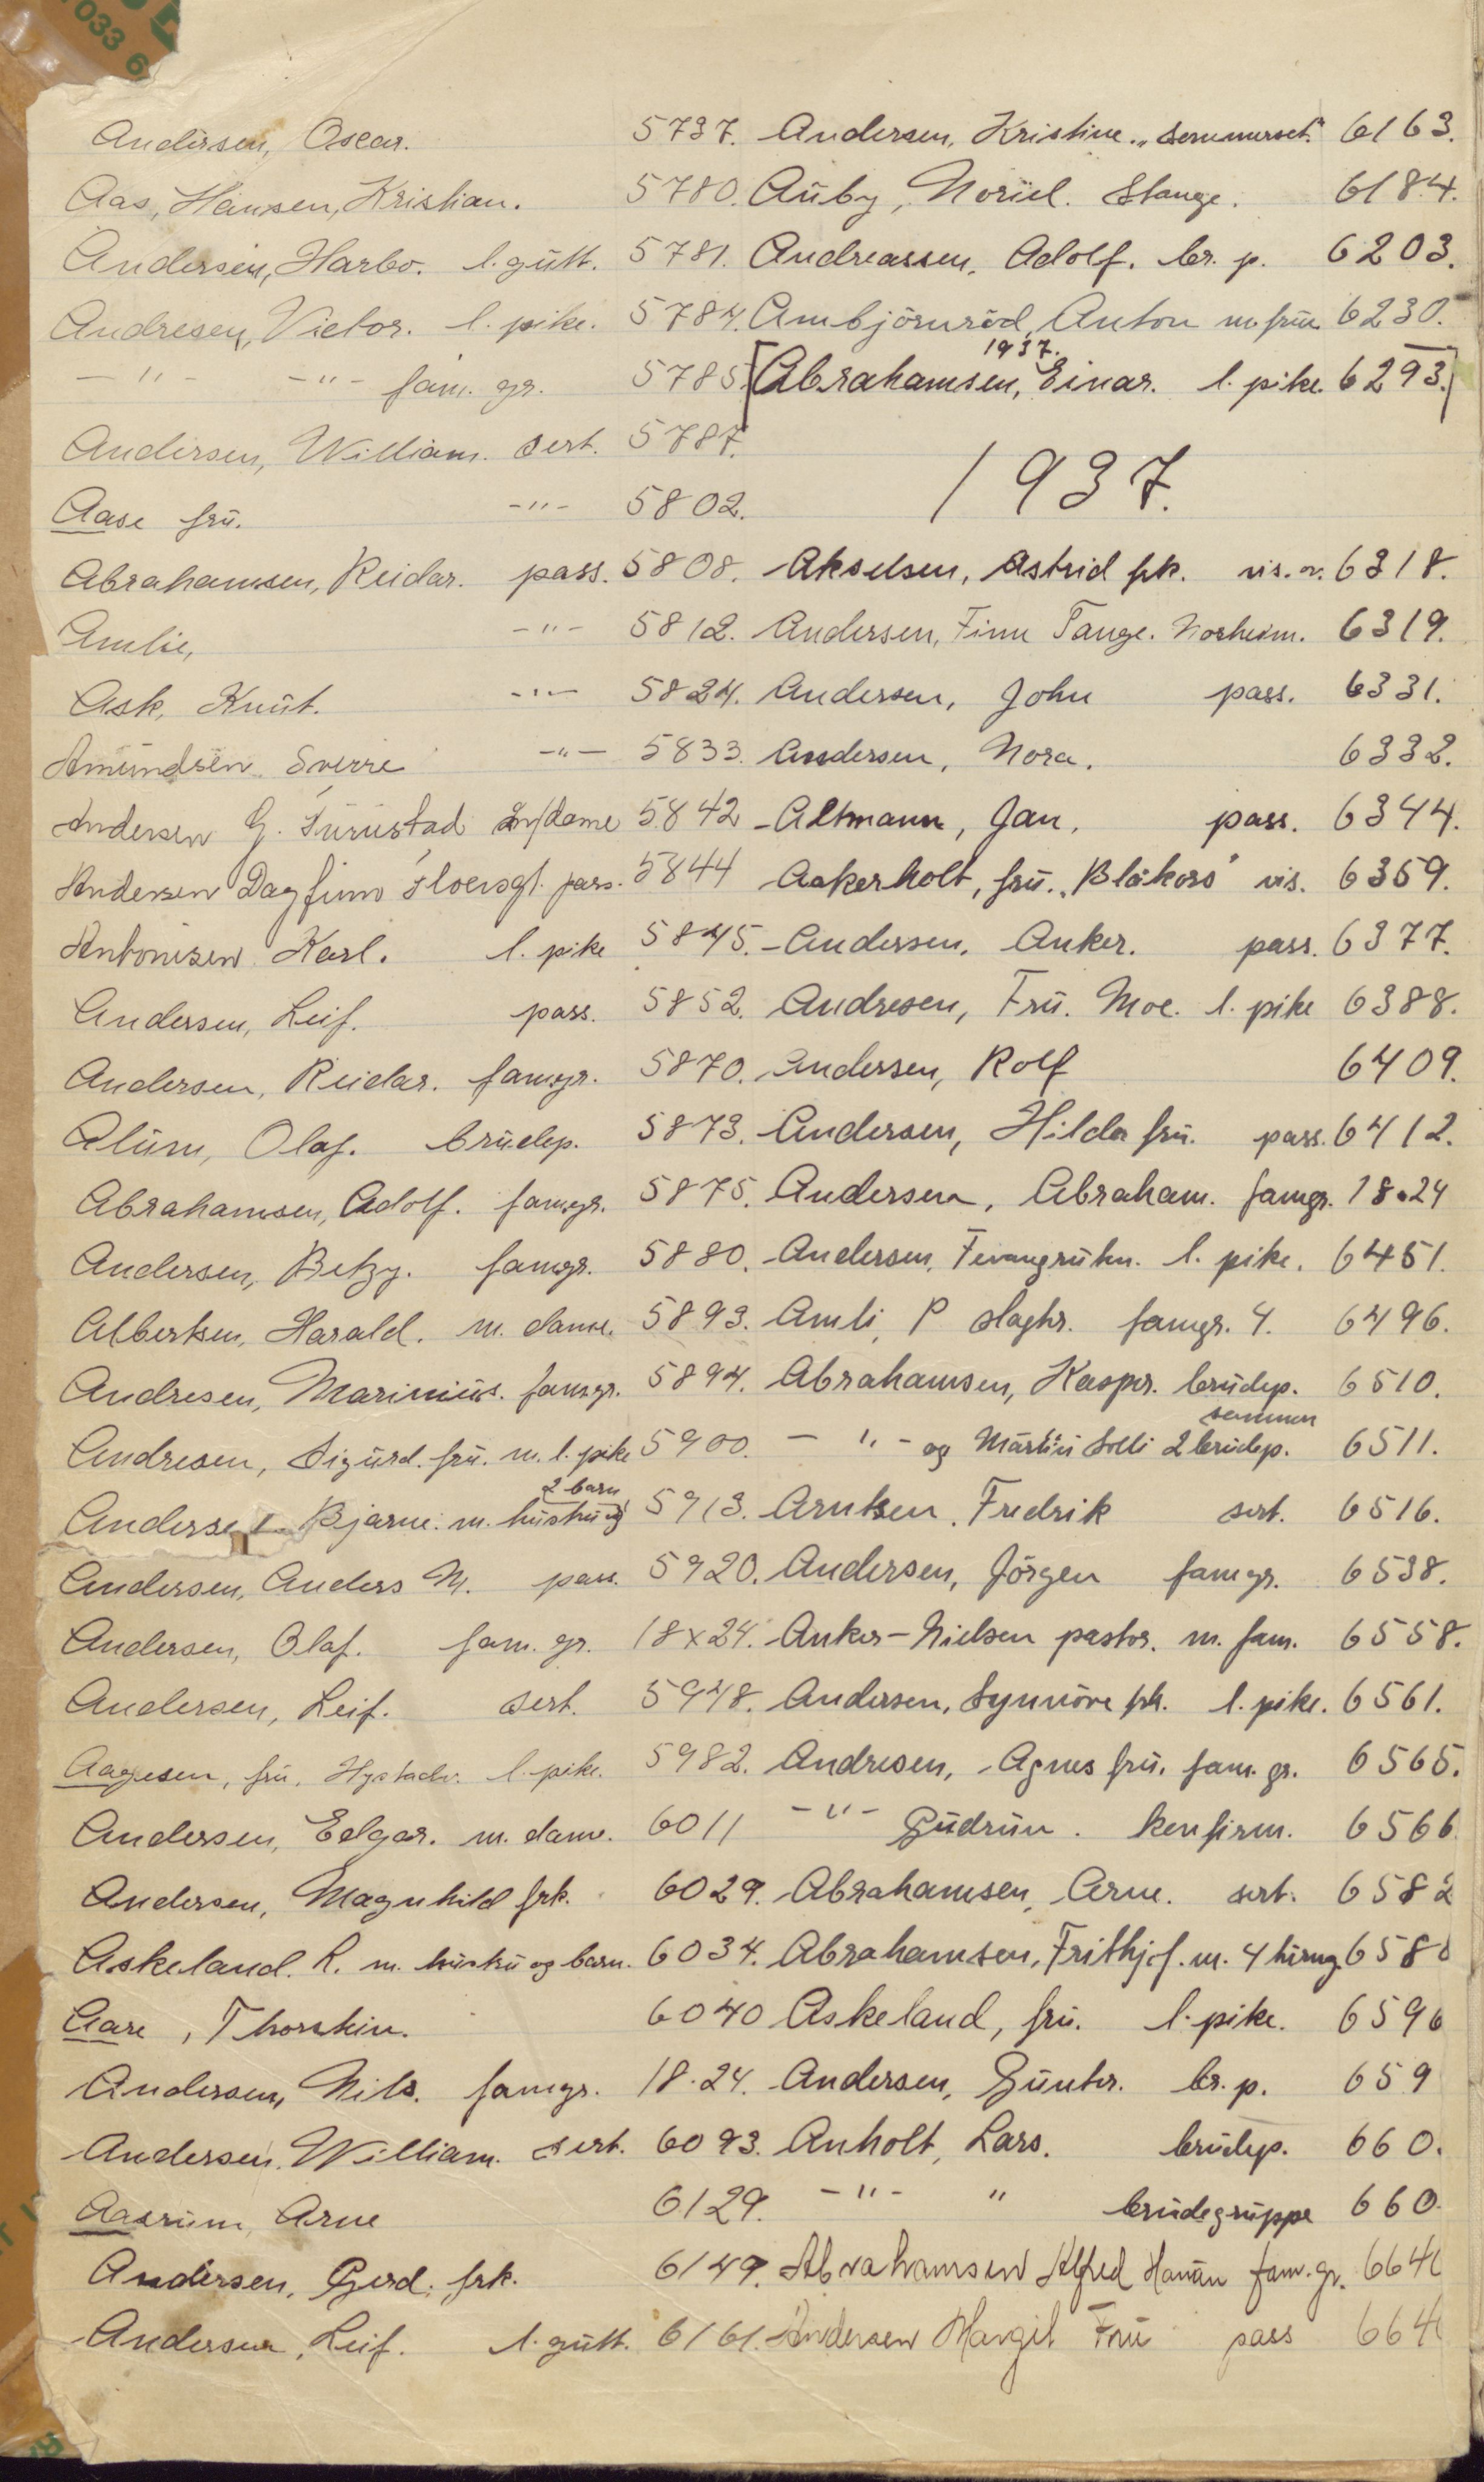 033 6
Andersen, Oscar. 5737.
Aas, Hansen, Kristian. 5780.
Andersen, Harbo. l. gutt. 5781.
Andresen, Victor. l. pike. 5784.
— " — — " — fam. gr. 5785.
Andersen, William. sert. 5787.
Aase fru. — " — 5802.
Abrahamsen, Reidar. pass. 5808.
Amlie, — " — 5812.
Ask, Knut. — " — 5824.
Amundsen Sverre — " — 5833.
Andersen G. Furustad m/dame 5842
Andersen Dagfinn pass. 5844
Antonisen Karl. l. pike 5845.
Andersen, Leif. pass. 5852.
Andersen, Reidar. famgr. 5870.
Alum, Olaf. brudep. 5873.
Abrahamsen, Adolf. famgr. 5875.
Andersen, Betzy. famgr. 5880.
Albertsen, Harald. m. dame. 5893.
Andresen, Marinius. famgr. 5894.
Andresen, Sigurd. fru. m. l. pike 5900.
2 barn
Andersen Bjarne. m. hustru og 5913.
Andersen, Anders M. pass. 5920.
Andersen, Olaf. fam. gr. 18x24.
Andersen, Leif. sert. 5948.
Aagesen, fru, l. pike. 5982.
Andersen, Edgar. m. dame. 6011
Andersen, Magnhild frk. 6029.
Askeland. R. m. hustru og barn. 6034.
Aare, Thorstein. 6040
Andersen, Nils. famgr. 18.24.
Andersen, William. sert. 6093.
Aasrum, Arne 6129.
Andersen, Gerd. frk. 6149.
Andersen, Leif. l. gutt. 6161.
Andersen, Kristine. „Sommerset." 6163.
Auby, Noriel. Stange. 6184.
Andreassen, Adolf. br. p. 6203.
Ambjörnröd, Anton m. fru 6230.
1937.
[Abrahamsen, Einar. l. pike. 6293.]
1937.
Akselsen, Astrid frk. vis. 6318.
Andersen, Finn Tange. Norheim. 6319.
Andersen, John pass. 6331.
Andersen, Nora. 6332.
Altmann, Jan, pass. 6344.
Aakerholt, fru. „Blåkors" vis. 6359.
Andersen, Anker. pass. 6377.
Andresen, Fru. Moe. l. pike 6388.
Andersen, Rolf 6409.
Andersen, Hilda fru. pass. 6412.
Andersen, Abraham. famgr. 18.24
Andersen, l. pike. 6451.
Amli, P slagtr. famgr. 4. 6496.
Abrahamsen, Kasper. brudep. 6510.
sammen
— " — og Martin Solli 2 brudep. 6511.
Arntsen, Fredrik sert. 6516.
Andersen, Jörgen famgr. 6538.
Anker-Nielsen pastor. m. fam. 6558.
Andersen, Synnöve frk. l. pike. 6561.
Andresen, Agnes fru. fam. gr. 6565.
— " — Gudrun. konfirm. 6566
Abrahamsen, Arne. sert. 6582
Abrahamsen, Frithjof. m. 4 658
Askeland, fru. l. pike. 6596
Andersen, Gunter. br. p. 659
Anholt, Lars. brudep. 660.
— " — " brudegruppe 660.
Abrahamsen Alfred fam. gr. 664
Andersen Margit Fru pass 664